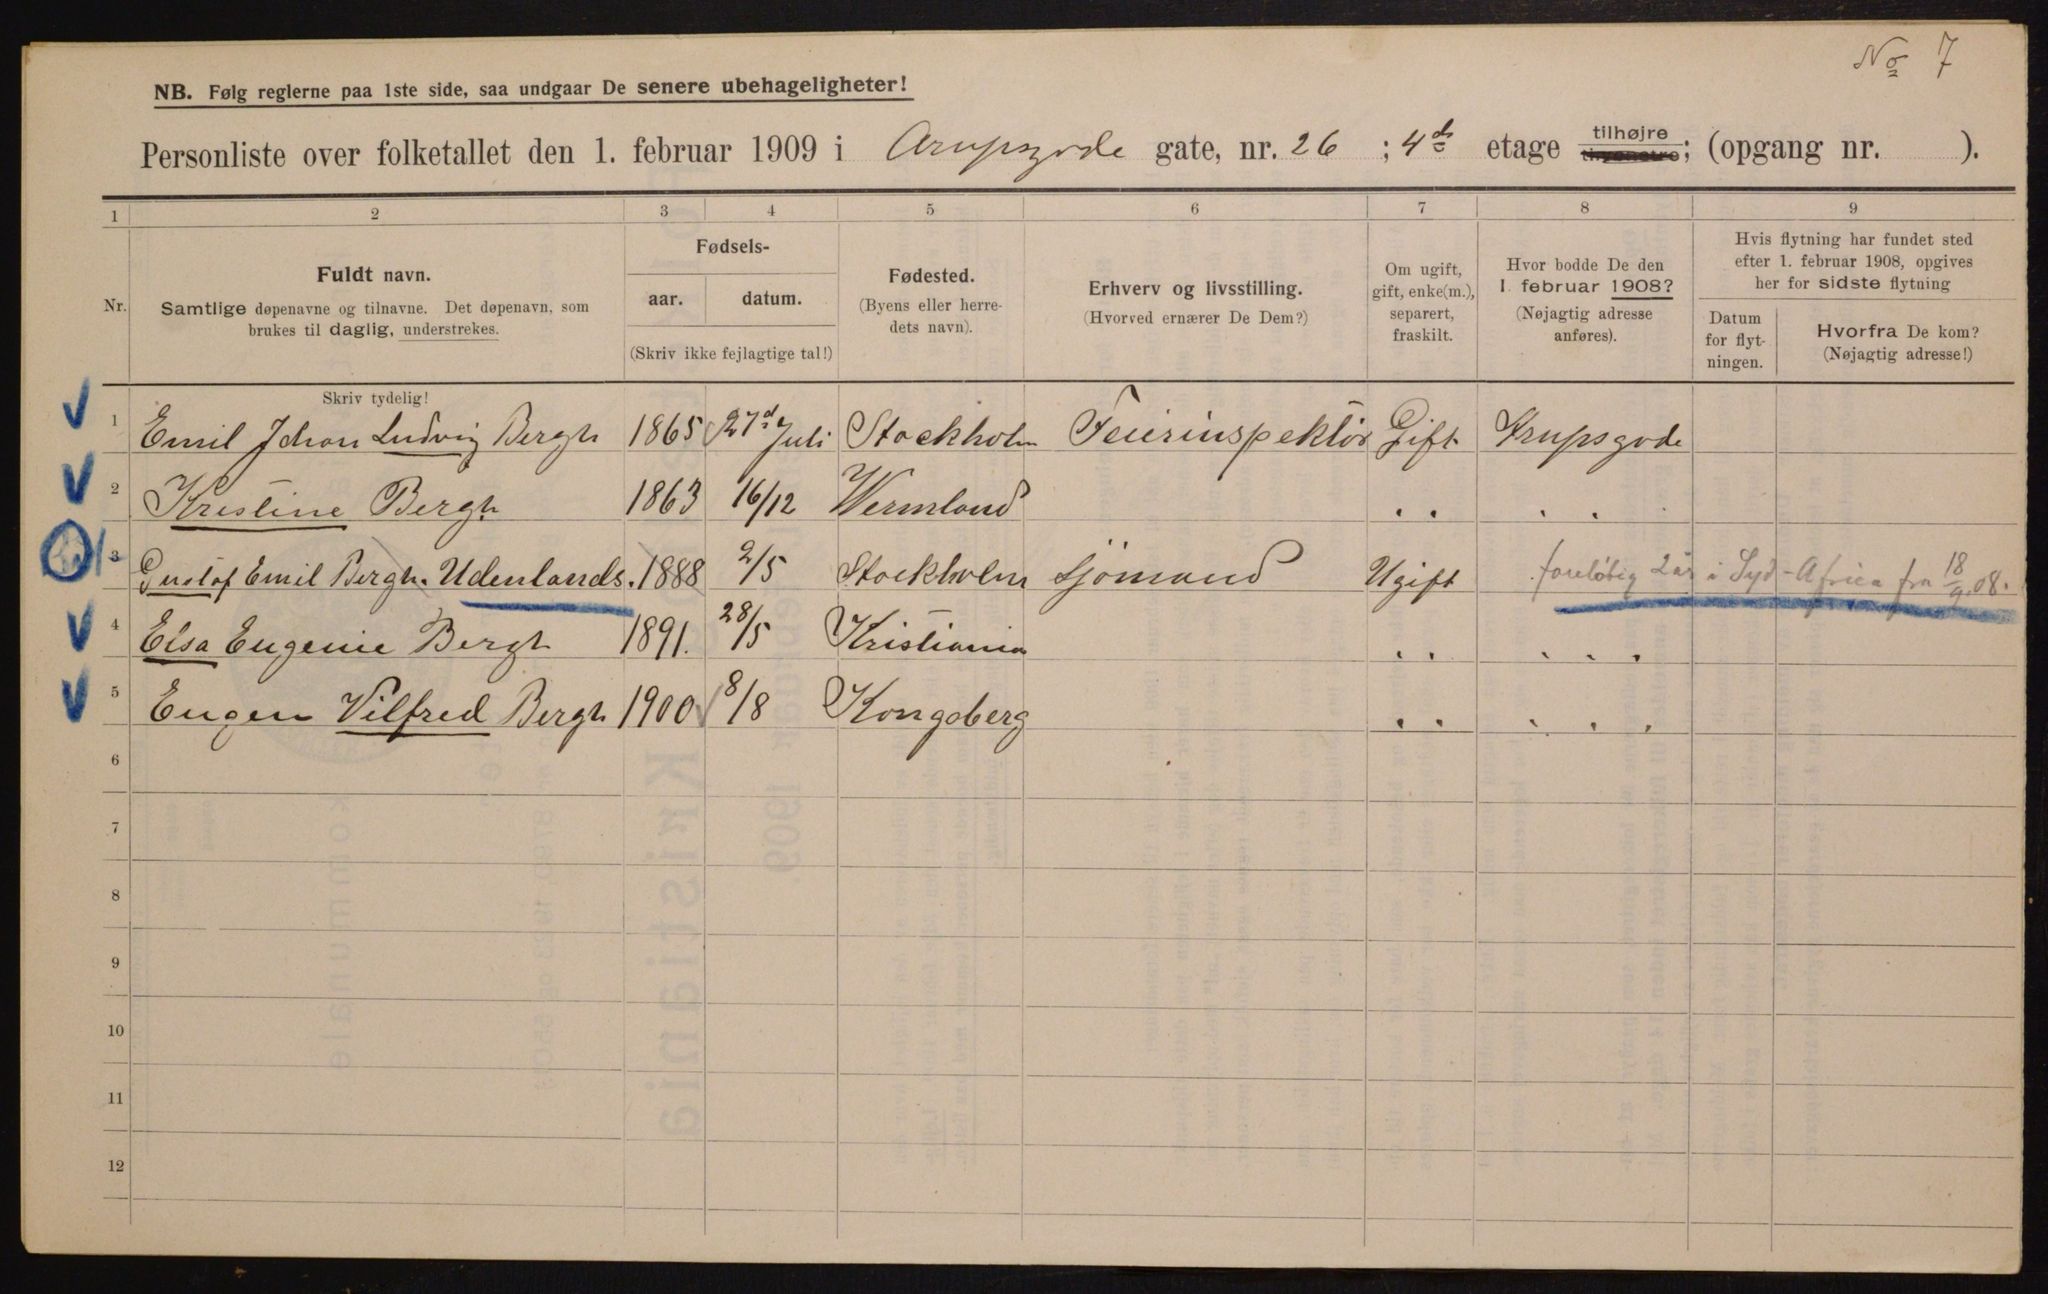 No 7
NB. Følg reglerne paa 1ste side, saa undgaar De senere ubehageligheter!
Personliste over folketallet den 1. februar 1909 i Arupsgade gate, nr. 26; 4de etage tilhøjre tilvenstre; (opgang nr. ).
1 2 3 4 5 6 7 8 9
Nr.
Fuldt navn.
Samtlige døpenavne og tilnavne. Det døpenavn, som
brukes til daglig, understrekes.
Skriv tydelig!
Fødsels-
aar. datum.
(Skriv ikke fejlagtige tal!)
Fødested.
(Byens eller herre-
dets navn).
Erhverv og livsstilling.
(Hvorved ernærer De Dem?)
Om ugift,
gift, enke(m.),
separert,
fraskilt.
Hvor bodde De den
1. februar 1908?
(Nøjagtig adresse
anføres).
Hvis flytning har fundet sted
efter 1. februar 1908, opgives
her for sidste flytning
Datum
for flyt-
ningen.
Hvorfra De kom?
(Nøjagtig adresse!)
1 Emil Johan Ludvig Bergh 1865 27d Juli Stockholm Feierinspektör Gift Arupsgade
2 Kristine Bergh 1863 16/12 Wermland . . . .
3 Gustaf Emil Bergh. Udenlands. 1888 2/5 Stockholm sjömand Ugift foreløbig 2 år i Syd-Africa fra 18/9.08.
4 Elsa Eugenie Bergh 1891. 28/5 Kristiania . . . . .
5 Eugen Vilfred Bergh 1900 8/8 Kongsberg . . . . .
6
7
8
9
10
11
12